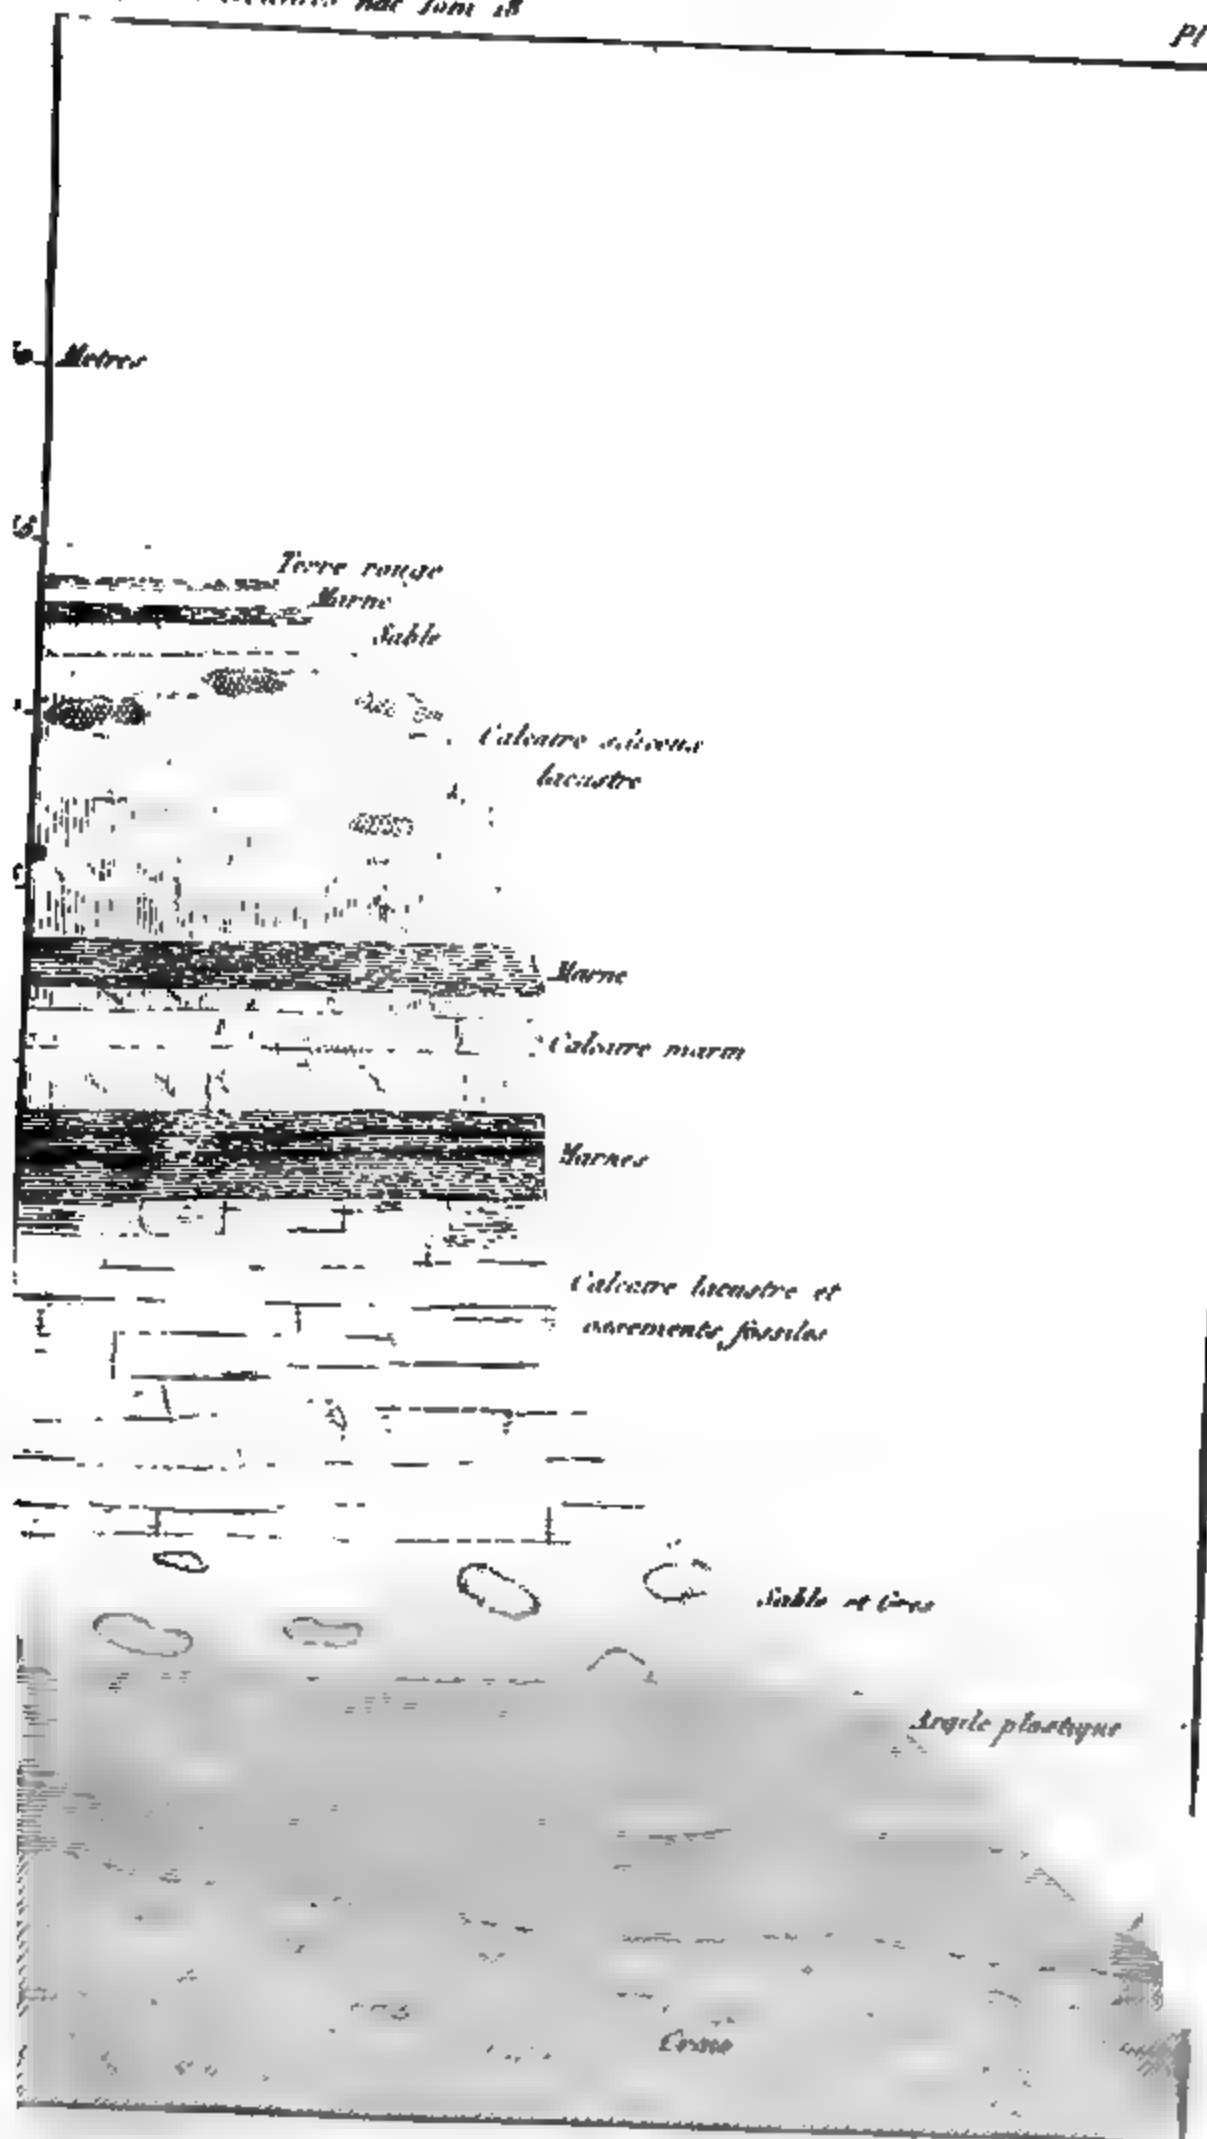 nat Tom 18
Pl
Metres
Terre rouge
Marne
Sable
Calcaire siliceux
lacustre
Marne
Calcaire marin
Marnes
Calcaire lacustre et
ossements fossiles
Sable et Gres
Argile plastique
Craie